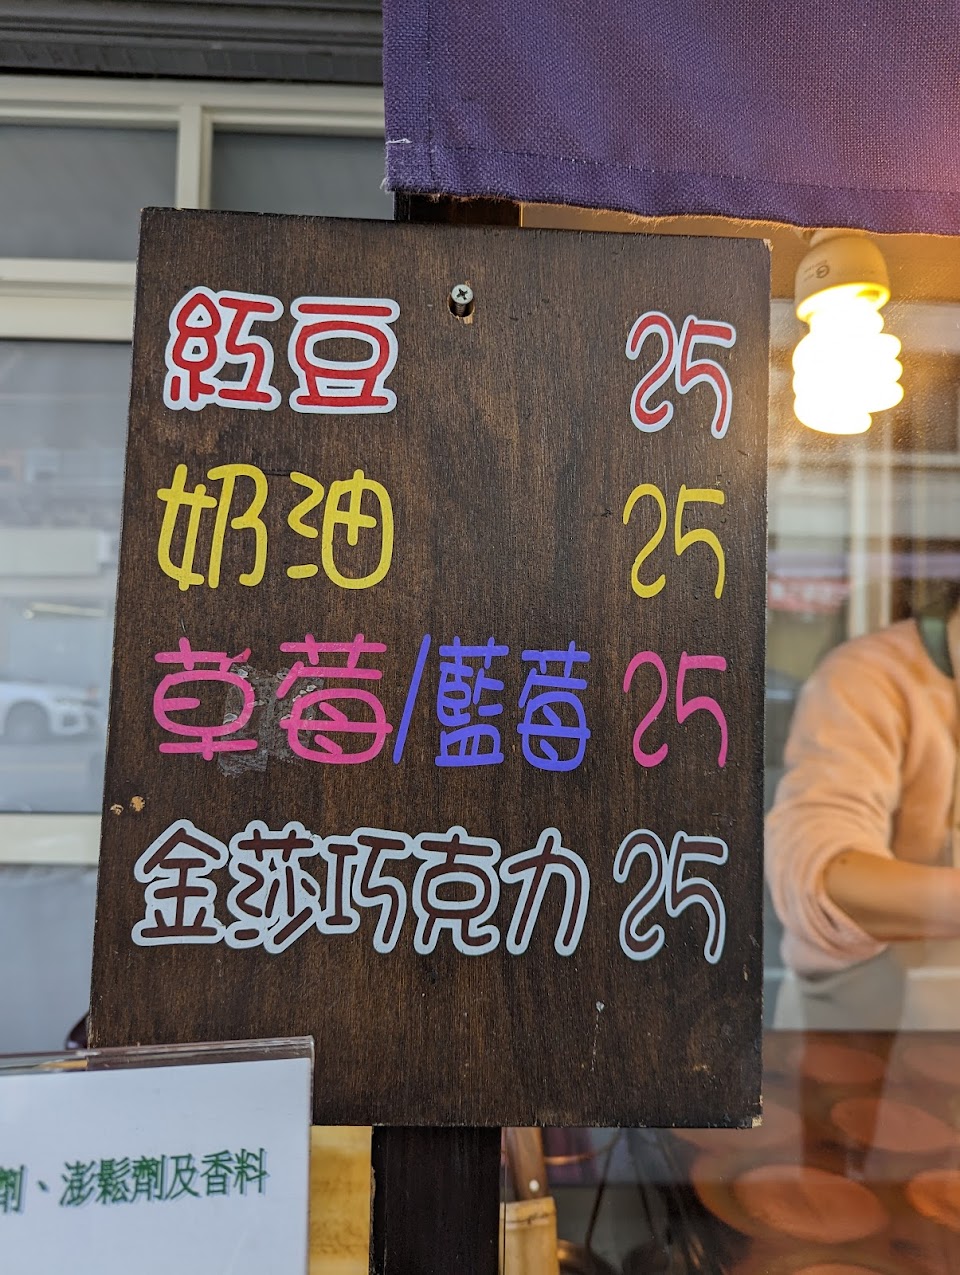 紅豆 25
奶油 25
草莓/藍莓 25
金莎巧克力 25
劑、澎鬆劑及香料